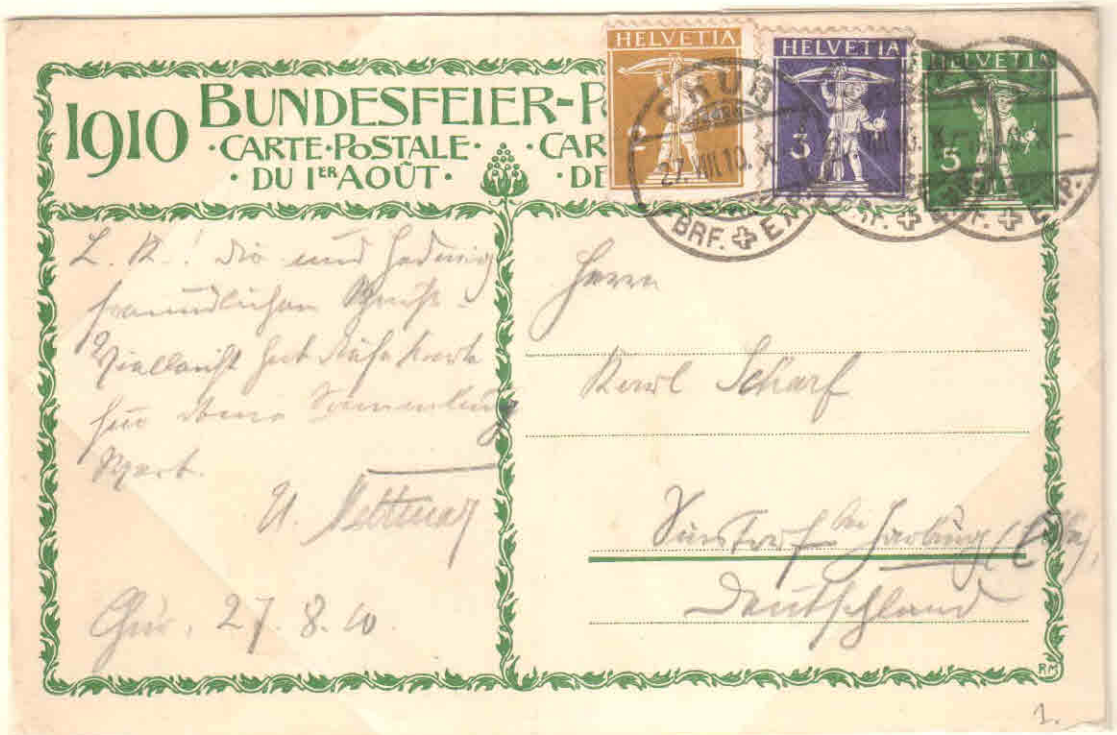 1910 BUNDESFEIER-P
·CARTE·POSTALE· CAR
·DU 1ER AOÛT· DE
HELVETIA
HELVETIA
3
HELVETIA
5
CHUR
27.VIII.10.X
BRF. EXP.
L. K.! Dir und Hedwig
freundlichen Gruß.
Vielleicht hat diese Karte
für deine Sammlung
Wert.
Chur, 27.8.10.
Herrn
Karl Scharf
bei Harburg (Elbe),
Deutschland
RM
1.